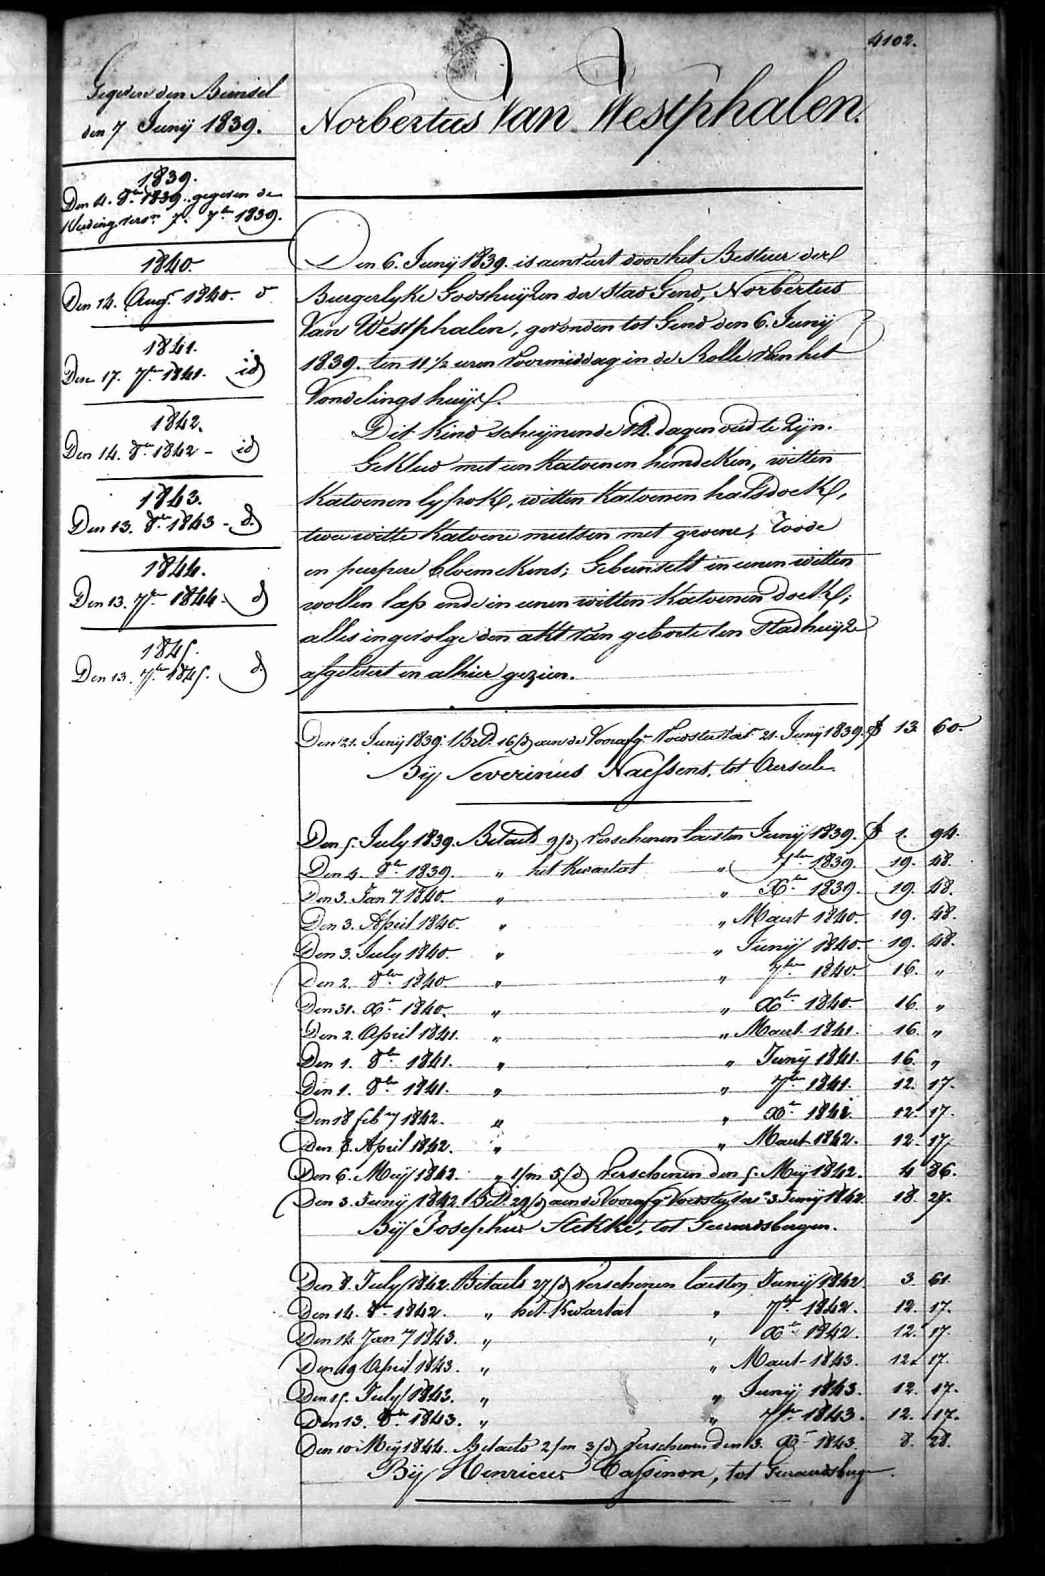 4102.
Gegeven den Bunsel
den 7 Junij 1839.
1839.
Den 4. 8br 1839. gegeven de
Kleeding vers. 7. 7br 1839.
1840.
Den 14. Aug. 1840. d
1841.
Den 17. 7br 1841. id
1842.
Den 14. 8br 1842 - id
1843.
Den 13. 8br 1843 - d.
1844.
Den 13. 7br 1844. d
1845.
Den 13. 7br 1845. d.
Norbertus Van Westphalen.
Den 6. Junij 1839. is aenveirt door het Bestuer der
Burgerlyke Godshuijzen der Stad Gend, Norbertus
Van Westphalen, gevonden tot Gend den 6. Junij
1839. ten 11 1/2 uren Voormiddag in de Rolle van het
Vondelingshuijs.
Dit kind schijnende 14. dagen oud te zyn.
Gekleed met een katoenen hemdeken, witten
katoenen lyfrok, witten katoenen halsdoek,
twee witte katoene mutsen met groene, roode
en peirpere bloemekens; Gebunselt in eenen witten
wollen lap ende in eenen witten katoenen doek;
alles ingevolge den akt van geboorte ten Stadhuijze
afgelevert en alhier gezien.
Den 21. Junij 1839. Bet. 16/d aen de Voorafg. Voedster vert. 21. Junij 1839. f 13. 60.
Bij Severinus Naessens, tot Ursele.
Den 5. July 1839. Betaelt 9/d Verschenen laesten Junij 1839. f 1. 94.
Den 4. 8br 1839. " het Kwartael " 7ber 1839. 19. 48.
Den 3. Jan 7 1840. " " Xber 1839. 19. 48.
Den 3. April 1840. " " Maert 1840. 19. 48.
Den 3. July 1840. " " Junij 1840. 19. 48.
Den 2. 8ber 1840 " " 7ber 1840 16. "
Den 31. Xbr 1840. " " Xber 1840. 16. "
Den 2. April 1841. " " Maert 1841. 16. "
Den 1. 8br 1841. " " Junij 1841. 16. "
Den 1. 8br 1841. " " 7ber 1841. 12. 17.
Den 18 feb 7 1842. " " Xbr 1841. 12. 17.
Den 8. April 1842. " " Maert 1842. 12. 17.
Den 6. Meij 1842. " 1/m 5/d Verschenen den 5. Meij 1842. 4. 86.
Den 3. Junij 1842. Bet. 29/d aen de Voorafg. Voedster vert. 3 Junij 1842 18. 27.
Bij Josephus Stekke, tot Geeraerdsbergen.
Den 8. July 1842. Betaelt 27/d Verschenen laesten Junij 1842 3. 61.
Den 14. 8br 1842. " het Kwartael " 7br 1842. 12. 17.
Den 14 Jan 7 1843. " " Xbr 1842. 12. 17.
Den 19 April 1843. " " Maert 1843. 12. 17.
Den 15. July 1843. " " Junij 1843. 12. 17.
Den 13. 8br 1843. " " 7br 1843. 12. 17.
Den 10 Meij 1844. Betaelt 2/m 3/d Verschenen den 3. Xbr 1843. 8. 28.
Bij Henricus Cassinon, tot Geeraerdsberge.